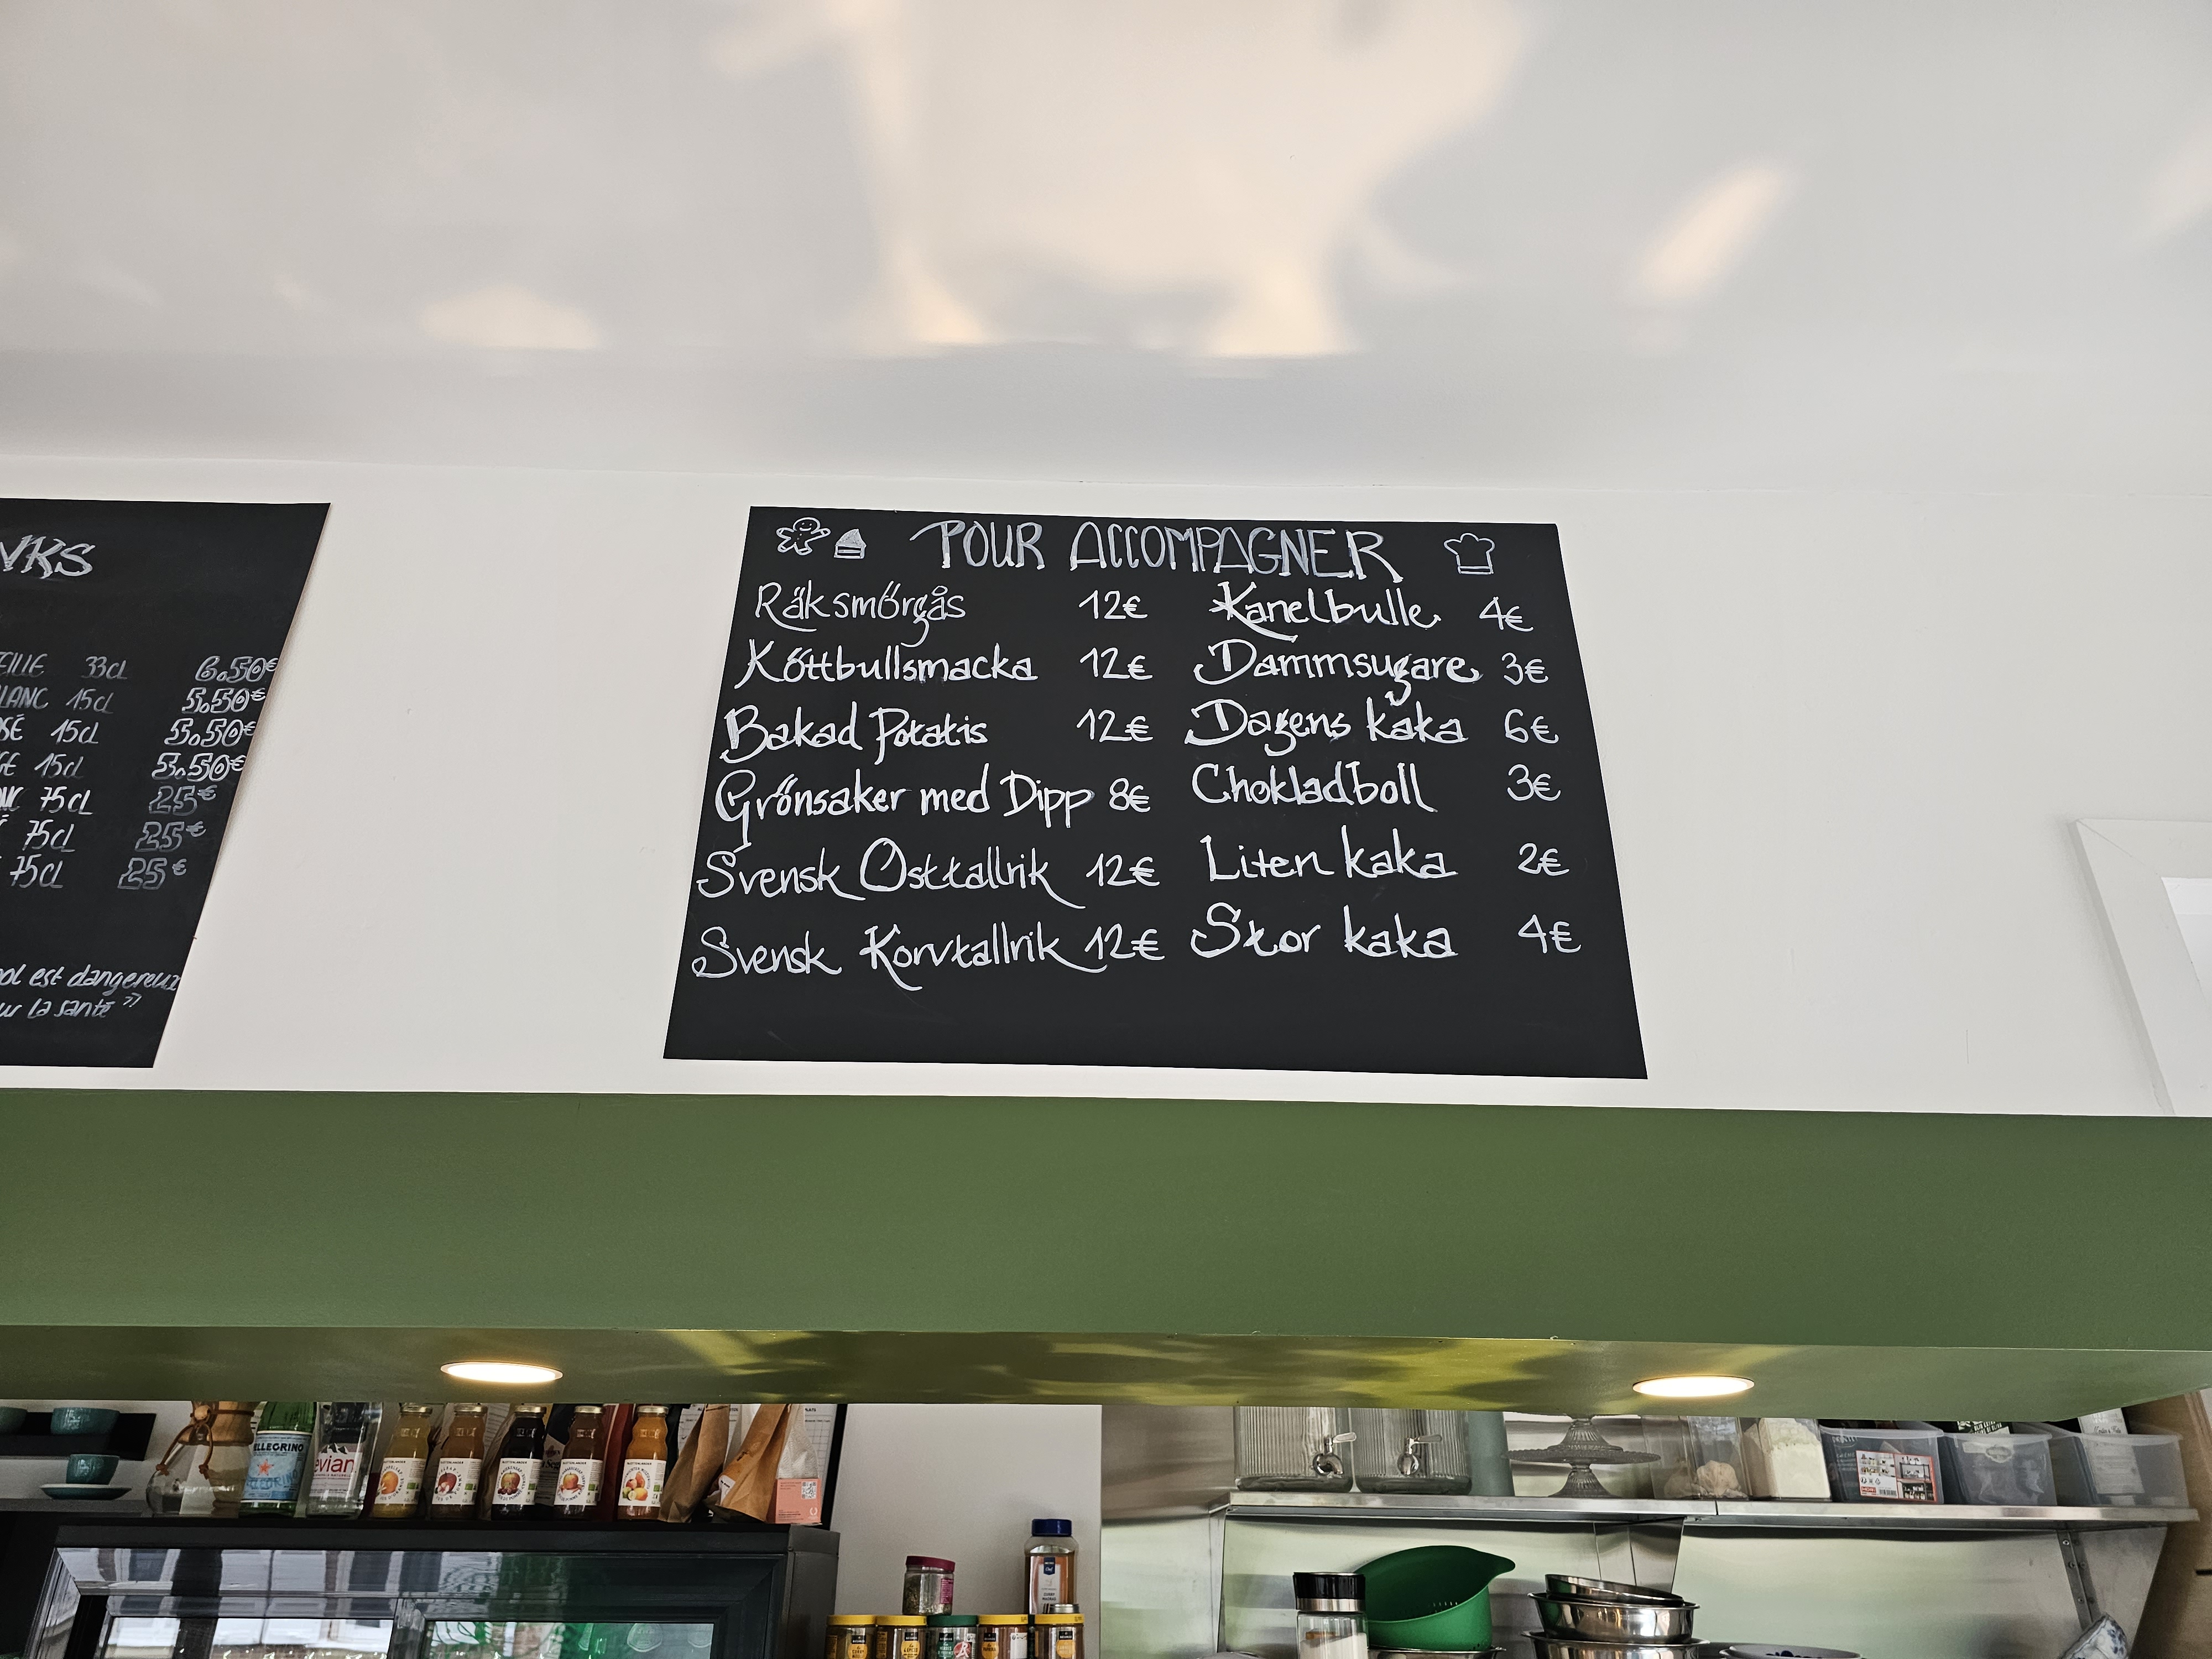 NKS
33cl 6.50€
15cl 5.50€
15cl 5.50€
15cl 5.50€
75cl 25€
75cl 25€
75cl 25€
est dangereux
la santé »
POUR ACCOMPAGNER
Räksmörgås 12€
Köttbullsmacka 12€
Bakad Potatis 12€
Grönsaker med Dipp 8€
Svensk Osttallrik 12€
Svensk Korvtallrik 12€
Kanelbulle 4€
Dammsugare 3€
Dagens kaka 6€
Chokladboll 3€
Liten kaka 2€
Stor kaka 4€
PELLEGRINO
evian